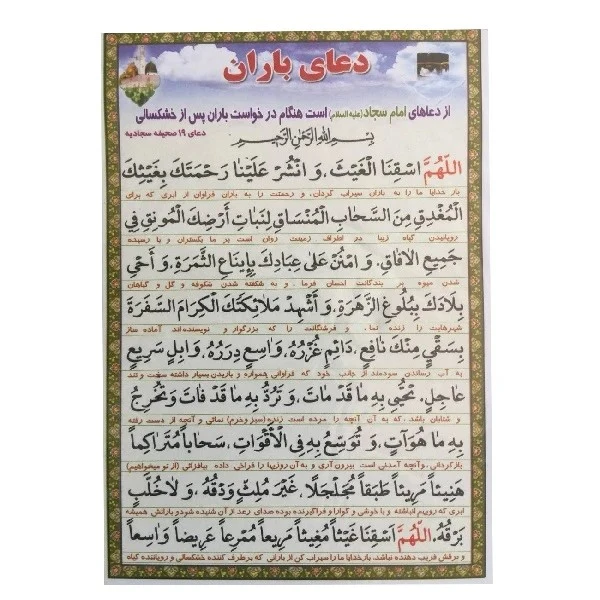 دعای باران
از دعاهای امام سجاد (علیه السلام) است هنگام درخواست باران پس از خشکسالی
دعای ۱۹ صحیفه سجادیه
بِسْمِ اللهِ الرَّحْمٰنِ الرَّحِيمِ
اَللّهُمَّ اسْقِنَا الْغَيْثَ، وَ انْشُرْ عَلَيْنا رَحْمَتَكَ بِغَيْثِكَ
بار خدایا ما را به باران سیراب گردان، و رحمتت را به باران فراوان از ابری که برای
الْمُغْدِقِ مِنَ السَّحابِ الْمُنْساقِ لِنَباتِ اَرْضِكَ الْمُونِقِ فِي
رویانیدن گیاه زیبا در اطراف زمینت روان است بر ما بگستران و با رسیده
جَمِيعِ الْافاقِ. وَ امْنُنْ عَلى عِبادِكَ بِاِيناعِ الثَّمَرَةِ، وَ اَحْيِ
شدن میوه بر بندگانت احسان فرما، و به شکفته شدن شکوفه و گل و گیاهان
بِلادَكَ بِبُلُوغِ الزَّهَرَةِ، وَ اَشْهِدْ مَلائِكَتَكَ الْكِرامَ السَّفَرَةَ
شهرهایت را زنده نما، و فرشتگانت را که بزرگوار و نویسنده‌اند آماده ساز
بِسَقْيٍ مِنْكَ نافِعٍ، دائِمٍ غُزْرُهُ، واسِعٍ دِرَرُهُ، وابِلٍ سَرِيعٍ
به آب رساندن سودمند از جانب خود که فراوانی همواره و باریدن بسیار داشته سخت و تند
عاجِلٍ. تُحْيِي بِهِ ما قَدْ ماتَ، وَ تَرُدُّ بِهِ ما قَدْ فاتَ وَ تُخْرِجُ
و شتابان باشد، که به آن آنچه را مرده است زنده (سبز و خرم) نمائی و آنچه از دست رفته
بِهِ ما هُوَ آتٍ، وَ تُوَسِّعُ بِهِ فِي الْاَقْواتِ، سَحاباً مُتَراكِماً
بازگردانی، و آنچه آمدنی است بیرون آری و به آن روزیها را فراخی داده بیافزائی (از تو میخواهیم)
هَنِيئاً مَرِيئاً طَبَقاً مُجَلْجَلًا، غَيْرَ مُلِثٍّ وَدْقُهُ، وَ لا خُلَّبٍ
ابری که رویهم انباشته و با خوشی و گوارا و فراگیرنده بوده صدای رعد از آن شنیده شود و بارانش همیشه
بَرْقُهُ. اَللّهُمَّ اسْقِنا غَيْثاً مُغِيثاً مَرِيعاً مُمْرِعاً عَرِيضاً واسِعاً
و برقش فریب دهنده نباشد، بارخدایا ما را سیراب کن از بارانی که برطرف کننده خشکسالی و رویاننده گیاه